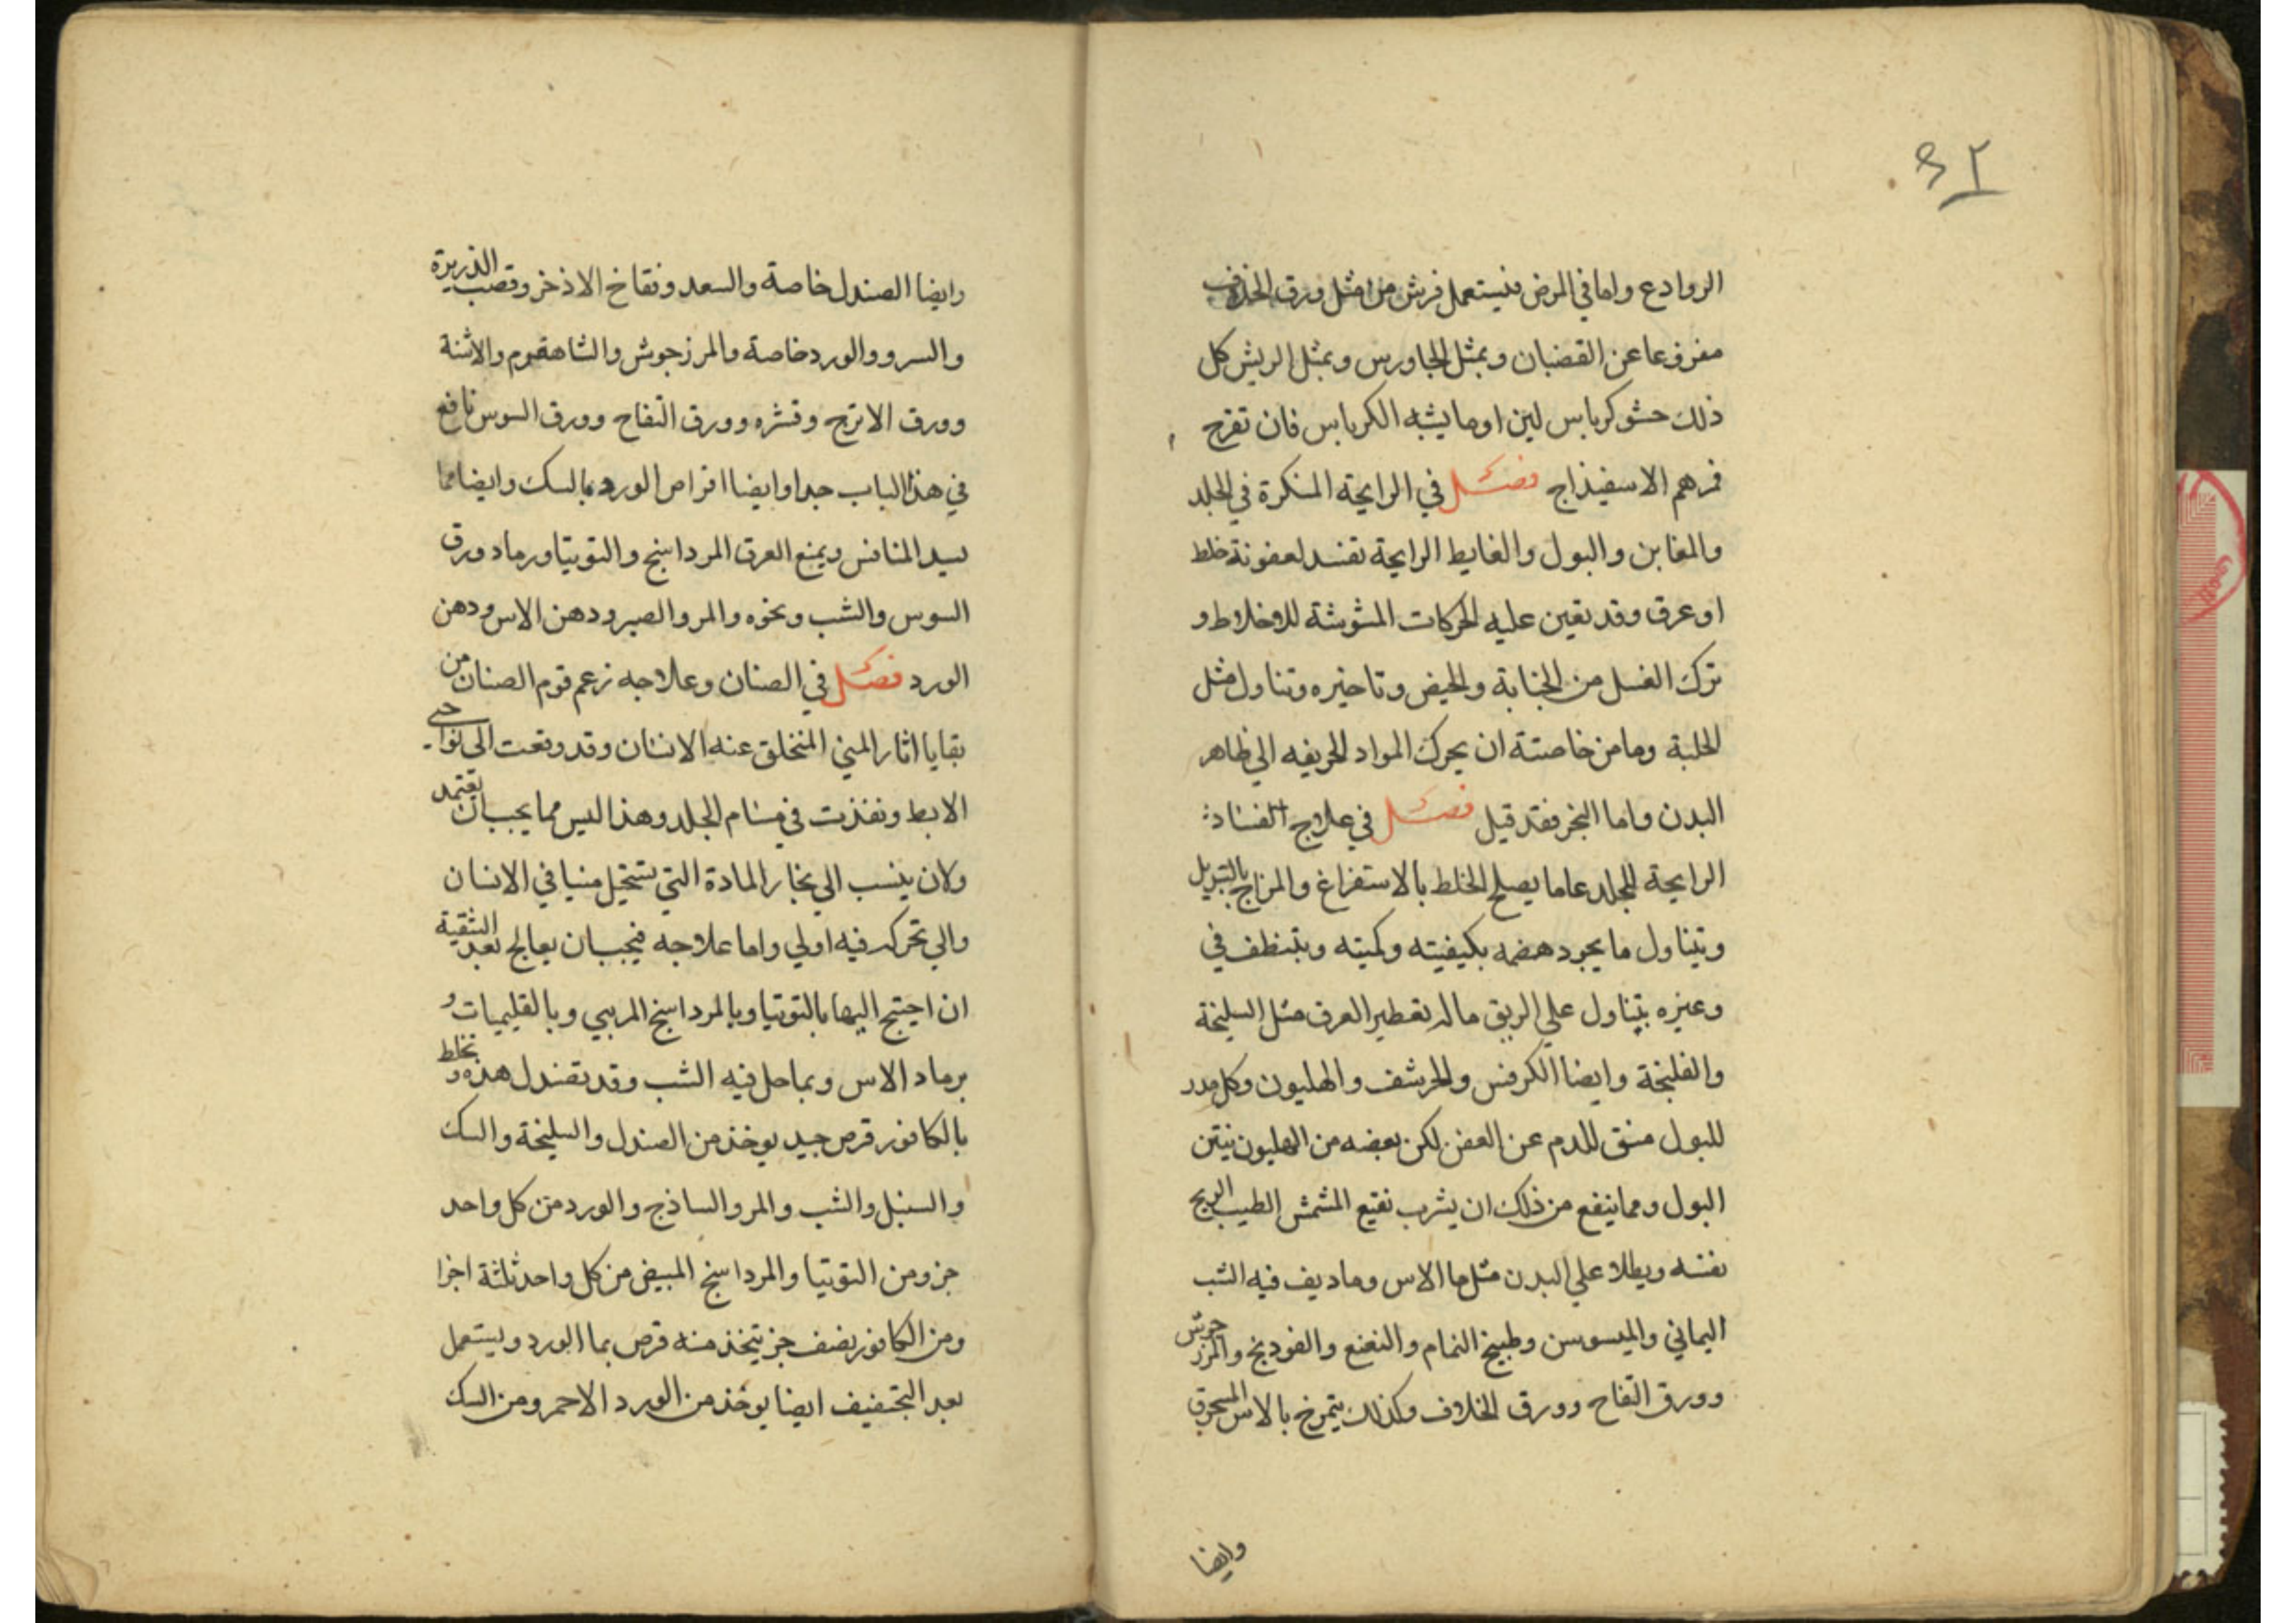 ٣٢
الروادع واما في المرض فليستعمل فرش من مثل ورق الخلاف
مفروعا عن القضبان وبمثل الجاورس وبمثل الريش كل
ذلك حشو كرباس لين او ما يشبه الكرباس فان تقرح
فمرهم الاسفيذاج فصل في الرايحة المنكرة في الجلد
والمغابن والبول والغايط الرايحة تفسد لعفونة خلط
او عرق وقد تعين عليه الحركات المشوشة للاخلاط و
ترك الغسل من الجنابة والحيض وتاخيره وتناول مثل
الحلبة وما من خاصتة ان يحرك المواد الحريفه الي ظاهر
البدن واما البخر فقد قيل فصل في علاج الفساد
الرايحة للجلد عاما يصلح الخلط بالاستفراغ والمزاج بالتبديل
ويتناول ما يجود هضمه بكيفيته وكميته ويتنظف في
وغيره يتناول علي الريق ماله تعطير العرق مثل السليخة
والفلنجة وايضا الكرفس والحرشف والهليون وكل مدر
للبول منق للدم عن العفن لكن بعضه من الهليون ينتن
البول ومما ينفع من ذلك ان يشرب نقيع المشمش الطيب الريح
نفسه ويطلا علي البدن مثل ما الاس وما ديف فيه الشب
اليماني والميسوسن وطبيخ النمام والنعنع والفودنج والمرزجوش
وورق التفاح وورق الخلاف وكذلك يتمرخ بالاس المسحوق
وايضا
وايضا الصندل خاصة والسعد وفقاخ الاذخر وقصب الذريرة
والسرو والورد خاصة والمرزجوش والشاهفرم والاشنة
وورق الاترج وقشره وورق التفاح وورق السوس نافع
في هذا الباب جدا وايضا اقراص الورد بالسك وايضا مما
يسد المنافس ويمنع العرق المرداسنج والتوتيا ورماد ورق
السوس والشب ونحوه والمر والصبر ودهن الاس ودهن
الورد فصل في الصنان وعلاجه زعم قوم الصنان من
بقايا اثار المني المتخلق عنه الانسان وقد وقعت الى نواحي
الابط ونفذت في مسام الجلد وهذا ليس مما يجب ان يعتمد
ولان ينسب الي بخار المادة التي تستحيل منيا في الانسان
والي تحركه فيه اولي واما علاجه فيجب ان يعالج بعد التنقية
ان احتيج اليها بالتوتيا وبالمرداسنج المربي وبالقليميات و
برماد الاس وبماحل فيه الشب وقد تصندل هذه وتخلط
بالكافور قرص جيد يوخذ من الصندل والسليخة والسك
والسنبل والشب والمر والساذج والورد من كل واحد
جزو من التوتيا والمرداسنج المبيض من كل واحد ثلثة اجزا
ومن الكافور نصف جز يتخذ منه قرص بما الورد ويستعمل
بعد التجفيف ايضا يوخذ من الورد الاحمر ومن السك